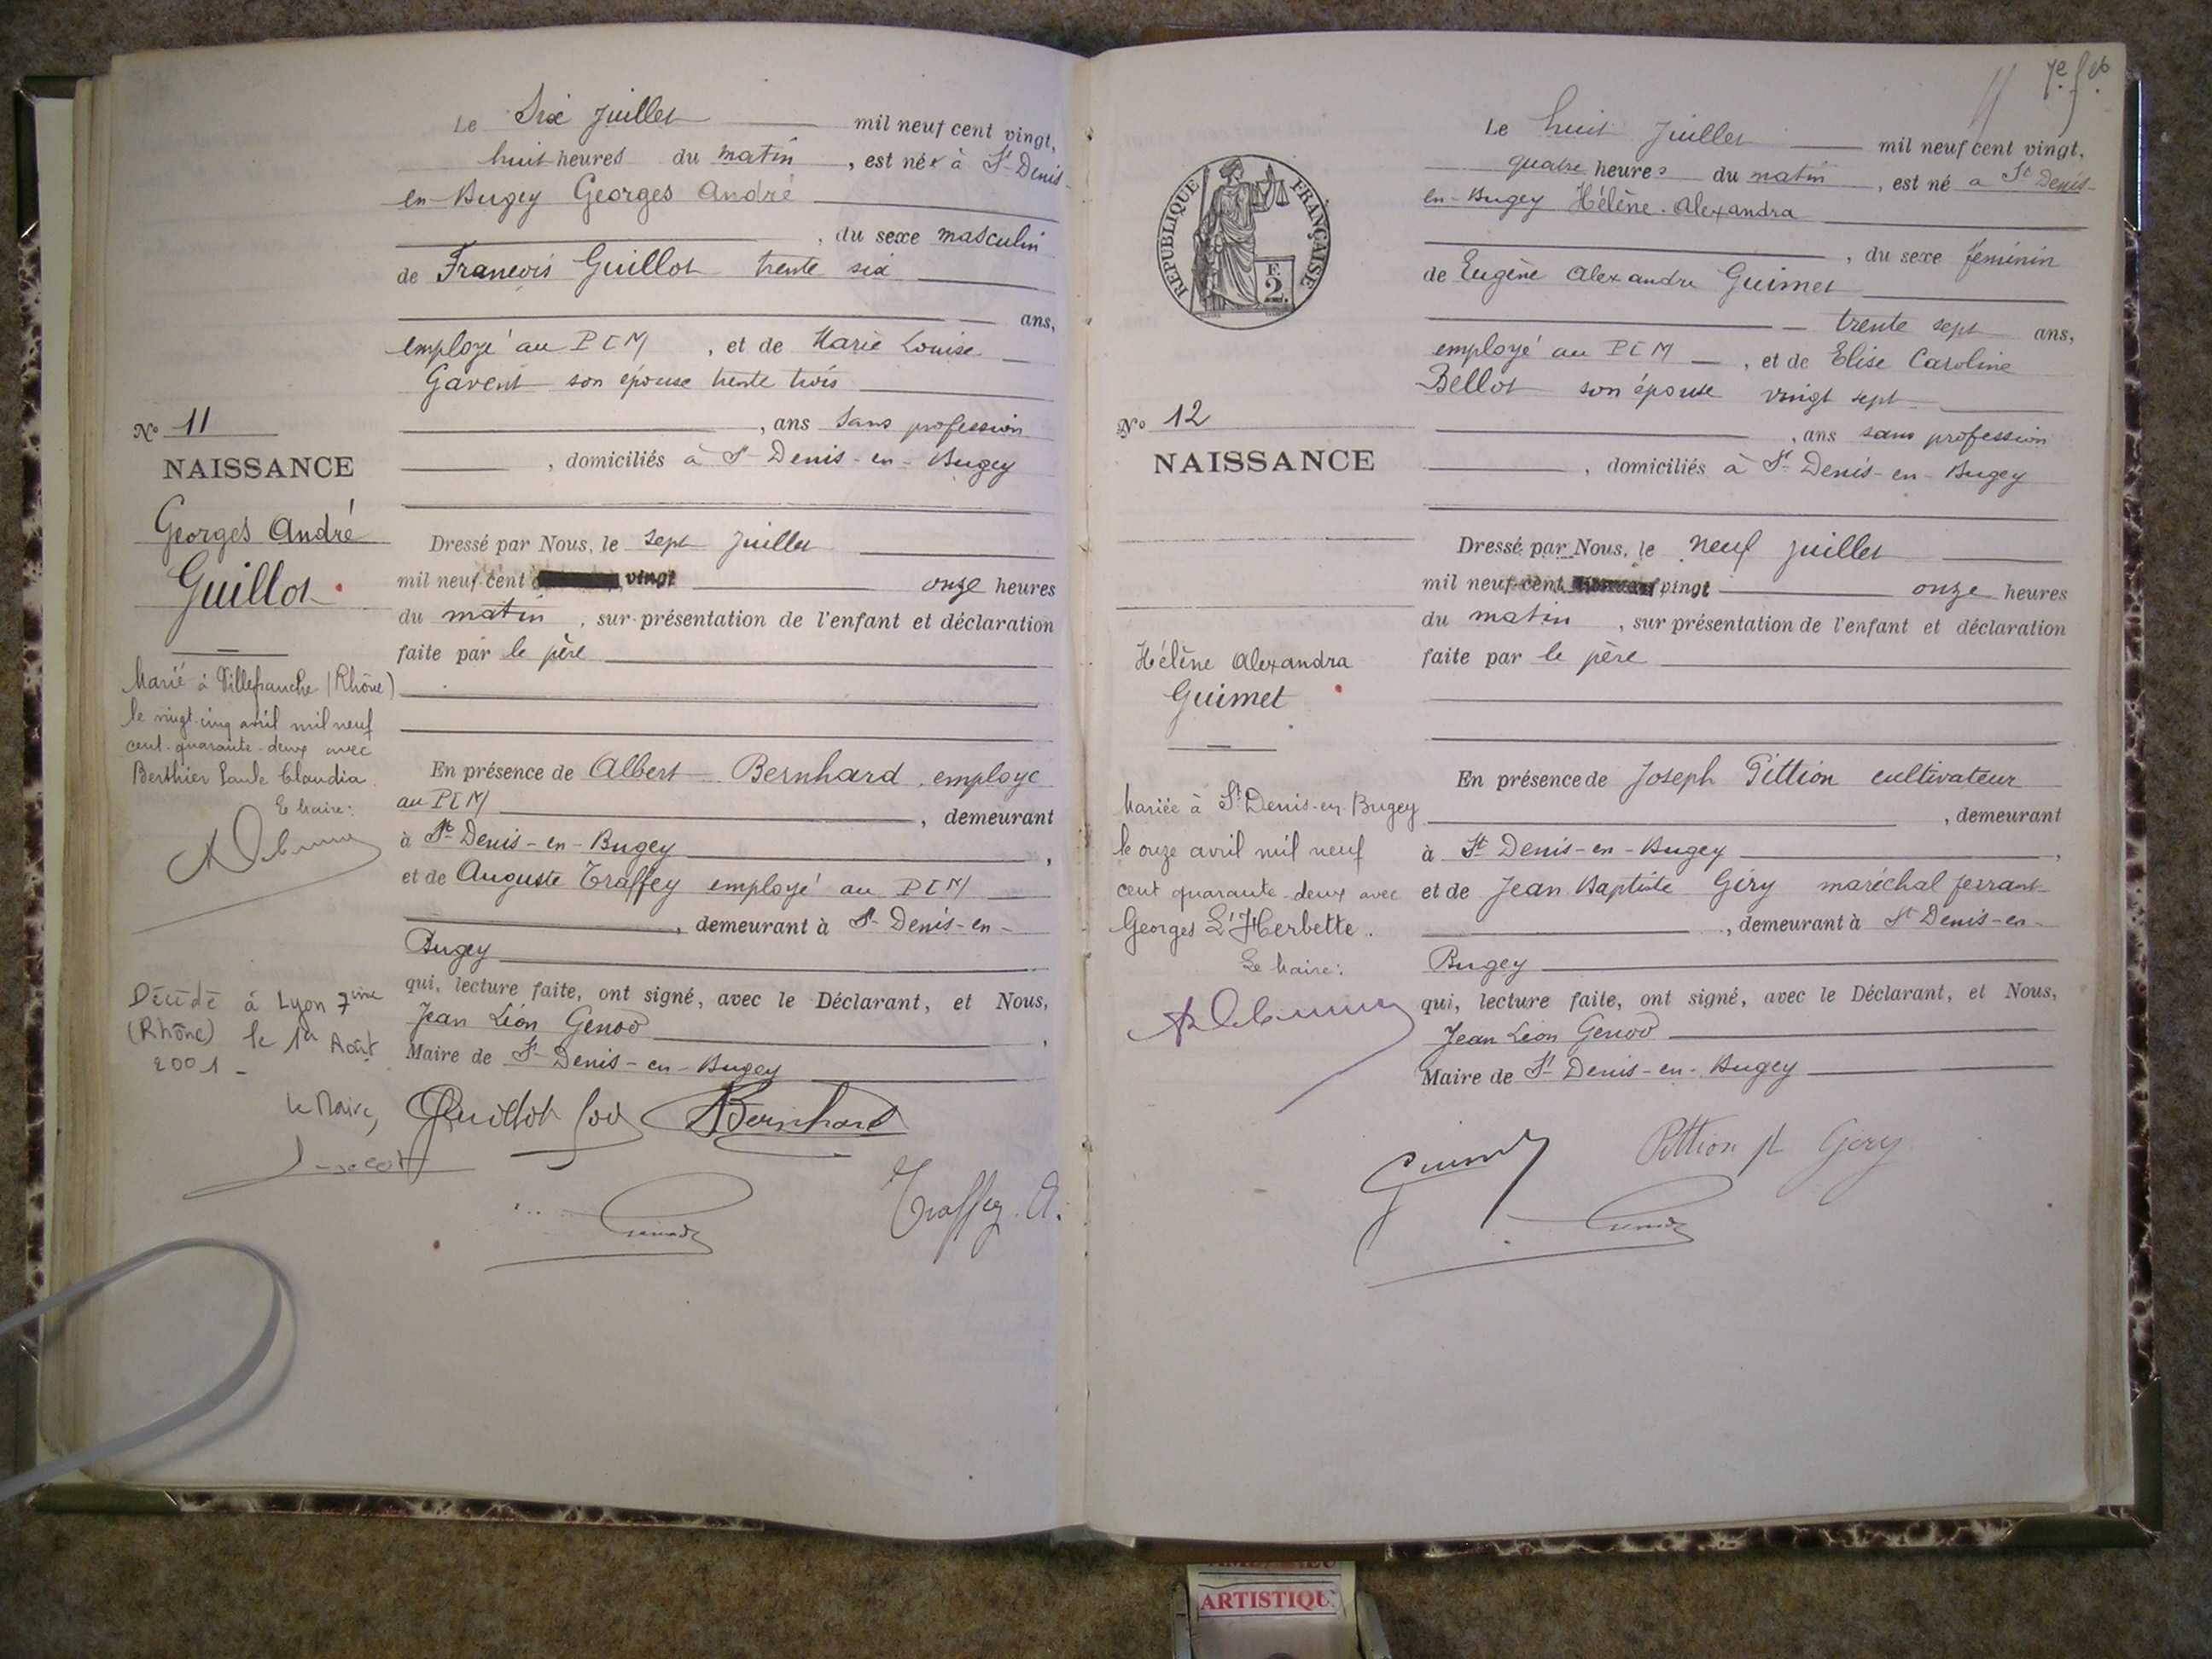 Le Six Juillet mil neuf cent vingt,
huit heures du matin, est né à St Denis-
en-Bugey Georges André
, du sexe masculin
de François Guillot trente six
ans,
employé au PLM, et de Marie Louise
Gavent son épouse trente trois
, ans sans profession
, domiciliés à St Denis-en-Bugey
Dressé par Nous, le sept Juillet
mil neuf cent vingt onze heures
du matin, sur présentation de l'enfant et déclaration
faite par le père
En présence de Albert Bernhard, employé
au PLM, demeurant
à St Denis-en-Bugey,
et de Auguste Traffey employé au PLM
, demeurant à St Denis-en-
Bugey
qui, lecture faite, ont signé, avec le Déclarant, et Nous,
Jean Léon Genod,
Maire de St Denis-en-Bugey
Guillot Bernhard
Traffey A.
No 11
NAISSANCE
Georges André
Guillot
Marié à Villefranche (Rhône)
le vingt-cinq avril mil neuf
cent-quarante-deux avec
Berthier Paule Claudia
Le Maire:
Décédé à Lyon 7ème
(Rhône) le 1er Août
2001 -
Le Maire,
7e f.
Le huit Juillet mil neuf cent vingt,
quatre heures du matin, est né à St Denis-
en-Bugey Hélène Alexandra
, du sexe féminin
de Eugène Alexandre Guimet
trente sept ans,
employé au PLM, et de Elise Caroline
Bellot son épouse vingt sept
, ans sans profession
, domiciliés à St Denis-en-Bugey
Dressé par Nous, le neuf juillet
mil neuf cent vingt onze heures
du matin, sur présentation de l'enfant et déclaration
faite par le père
En présence de Joseph Pittion cultivateur
, demeurant
à St Denis-en-Bugey,
et de Jean Baptiste Géry maréchal ferrant
, demeurant à St Denis-en-
Bugey
qui, lecture faite, ont signé, avec le Déclarant, et Nous,
Jean Léon Genod
Maire de St Denis-en-Bugey
Pittion Jh Gery
RÉPUBLIQUE FRANÇAISE
F.
2
No 12
NAISSANCE
Hélène Alexandra
Guimet
Mariée à St Denis-en-Bugey
le onze avril mil neuf
cent quarante-deux avec
Georges L'Herbette.
Le Maire:
ARTISTIQU